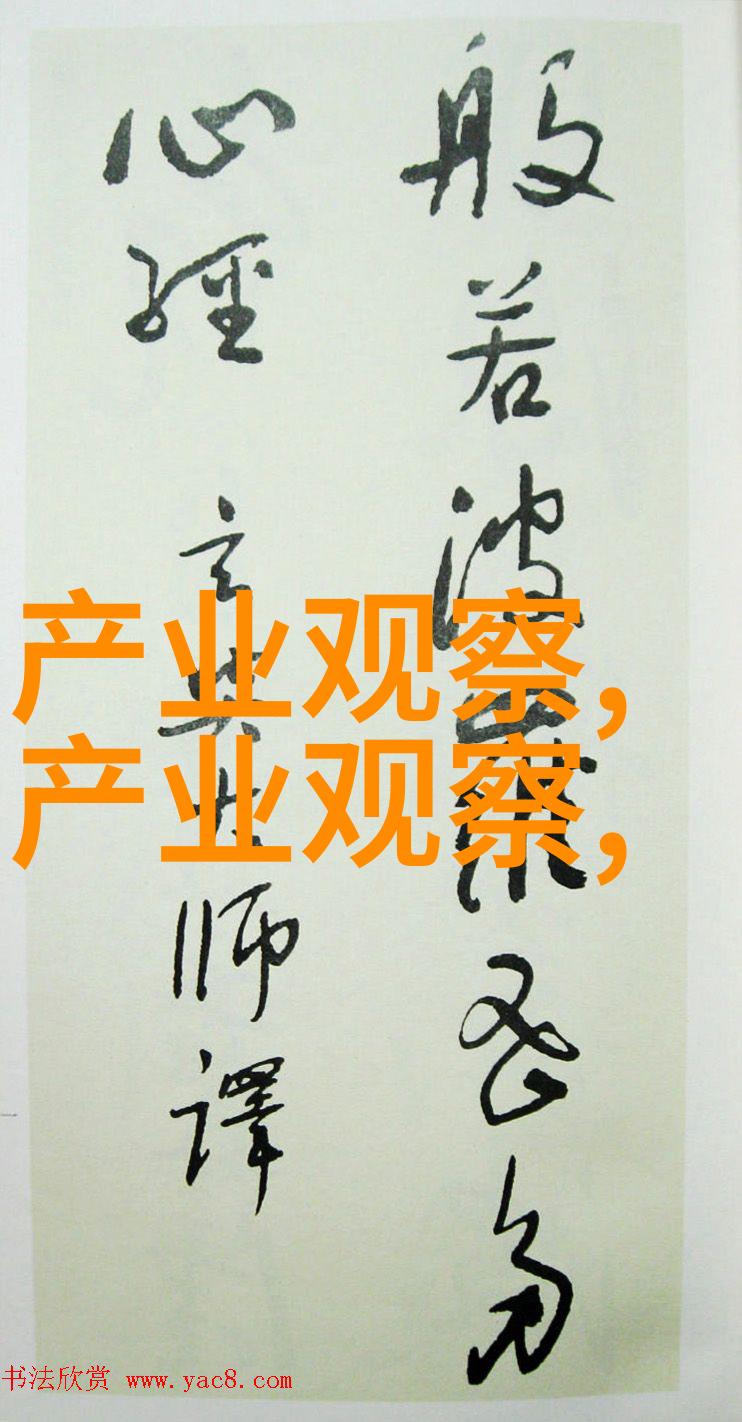 般若波羅蜜多
心經 玄奘大師譯
产业观察,
产业观察,
书法欣赏 www.yac8.com